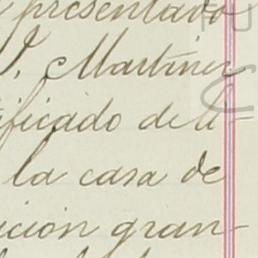 presentado
J. Martinez
ificado de li-
la casa de
icion gran-